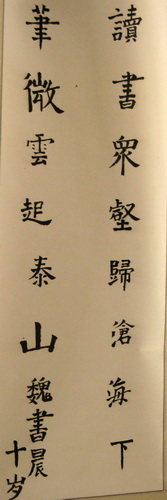 讀書衆壑歸滄海下
筆微雲起泰山魏書晨
十岁